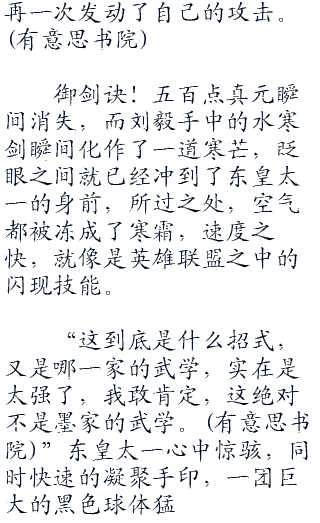 再一次发动了自己的攻击。
(有意思书院)
御剑诀！五百点真元瞬
间消失，而刘毅手中的水寒
剑瞬间化作了一道寒芒，眨
眼之间就已经冲到了东皇太
一的身前，所过之处，空气
都被冻成了寒霜，速度之
快，就像是英雄联盟之中的
闪现技能。
“这到底是什么招式，
又是哪一家的武学，实在是
太强了，我敢肯定，这绝对
不是墨家的武学。(有意思书
院)”东皇太一心中惊骇，同
时快速的凝聚手印，一团巨
大的黑色球体猛